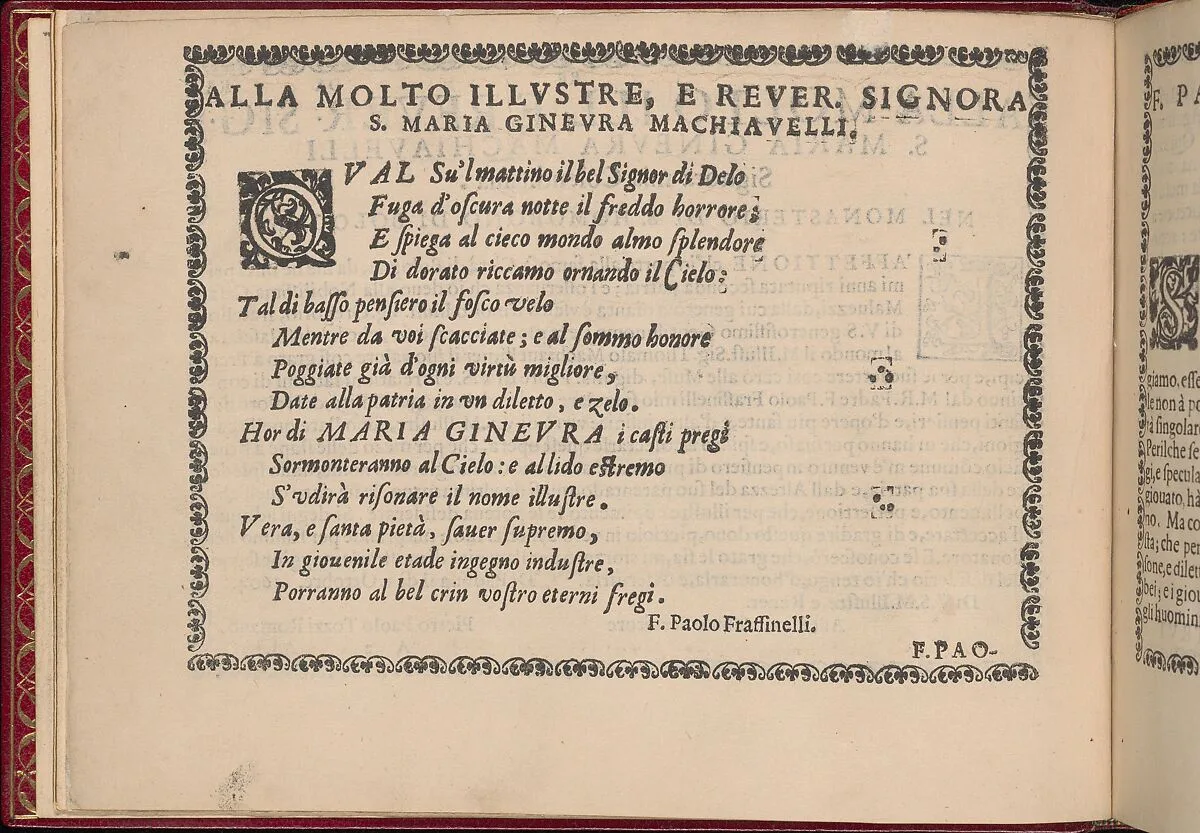 ALLA MOLTO ILLVSTRE, E REVER. SIGNORA
S. MARIA GINEVRA MACHIAVELLI.
QVAL Su'l mattino il bel Signor di Delo
Fuga d'oscura notte il freddo horrore;
E spiega al cieco mondo almo splendore
Di dorato riccamo ornando il Cielo:
Tal di basso pensiero il fosco velo
Mentre da voi scacciate; e al sommo honore
Poggiate già d'ogni virtù migliore,
Date alla patria in vn diletto, e zelo.
Hor di MARIA GINEVRA i casti pregi
Sormonteranno al Cielo: e al lido estremo
S'vdirà risonare il nome illustre.
Vera, e santa pietà, sauer supremo,
In giouenile etade ingegno industre,
Porranno al bel crin vostro eterni fregi.
F. Paolo Fraffinelli.
F.PAO-
F. PA
giamo, esse
le non à po
rà singolare
Perilche se
gi, e specula
giouato, ha
no. Ma co
sta; che per
sone, e dilet
bei; e i giou
gli huomin